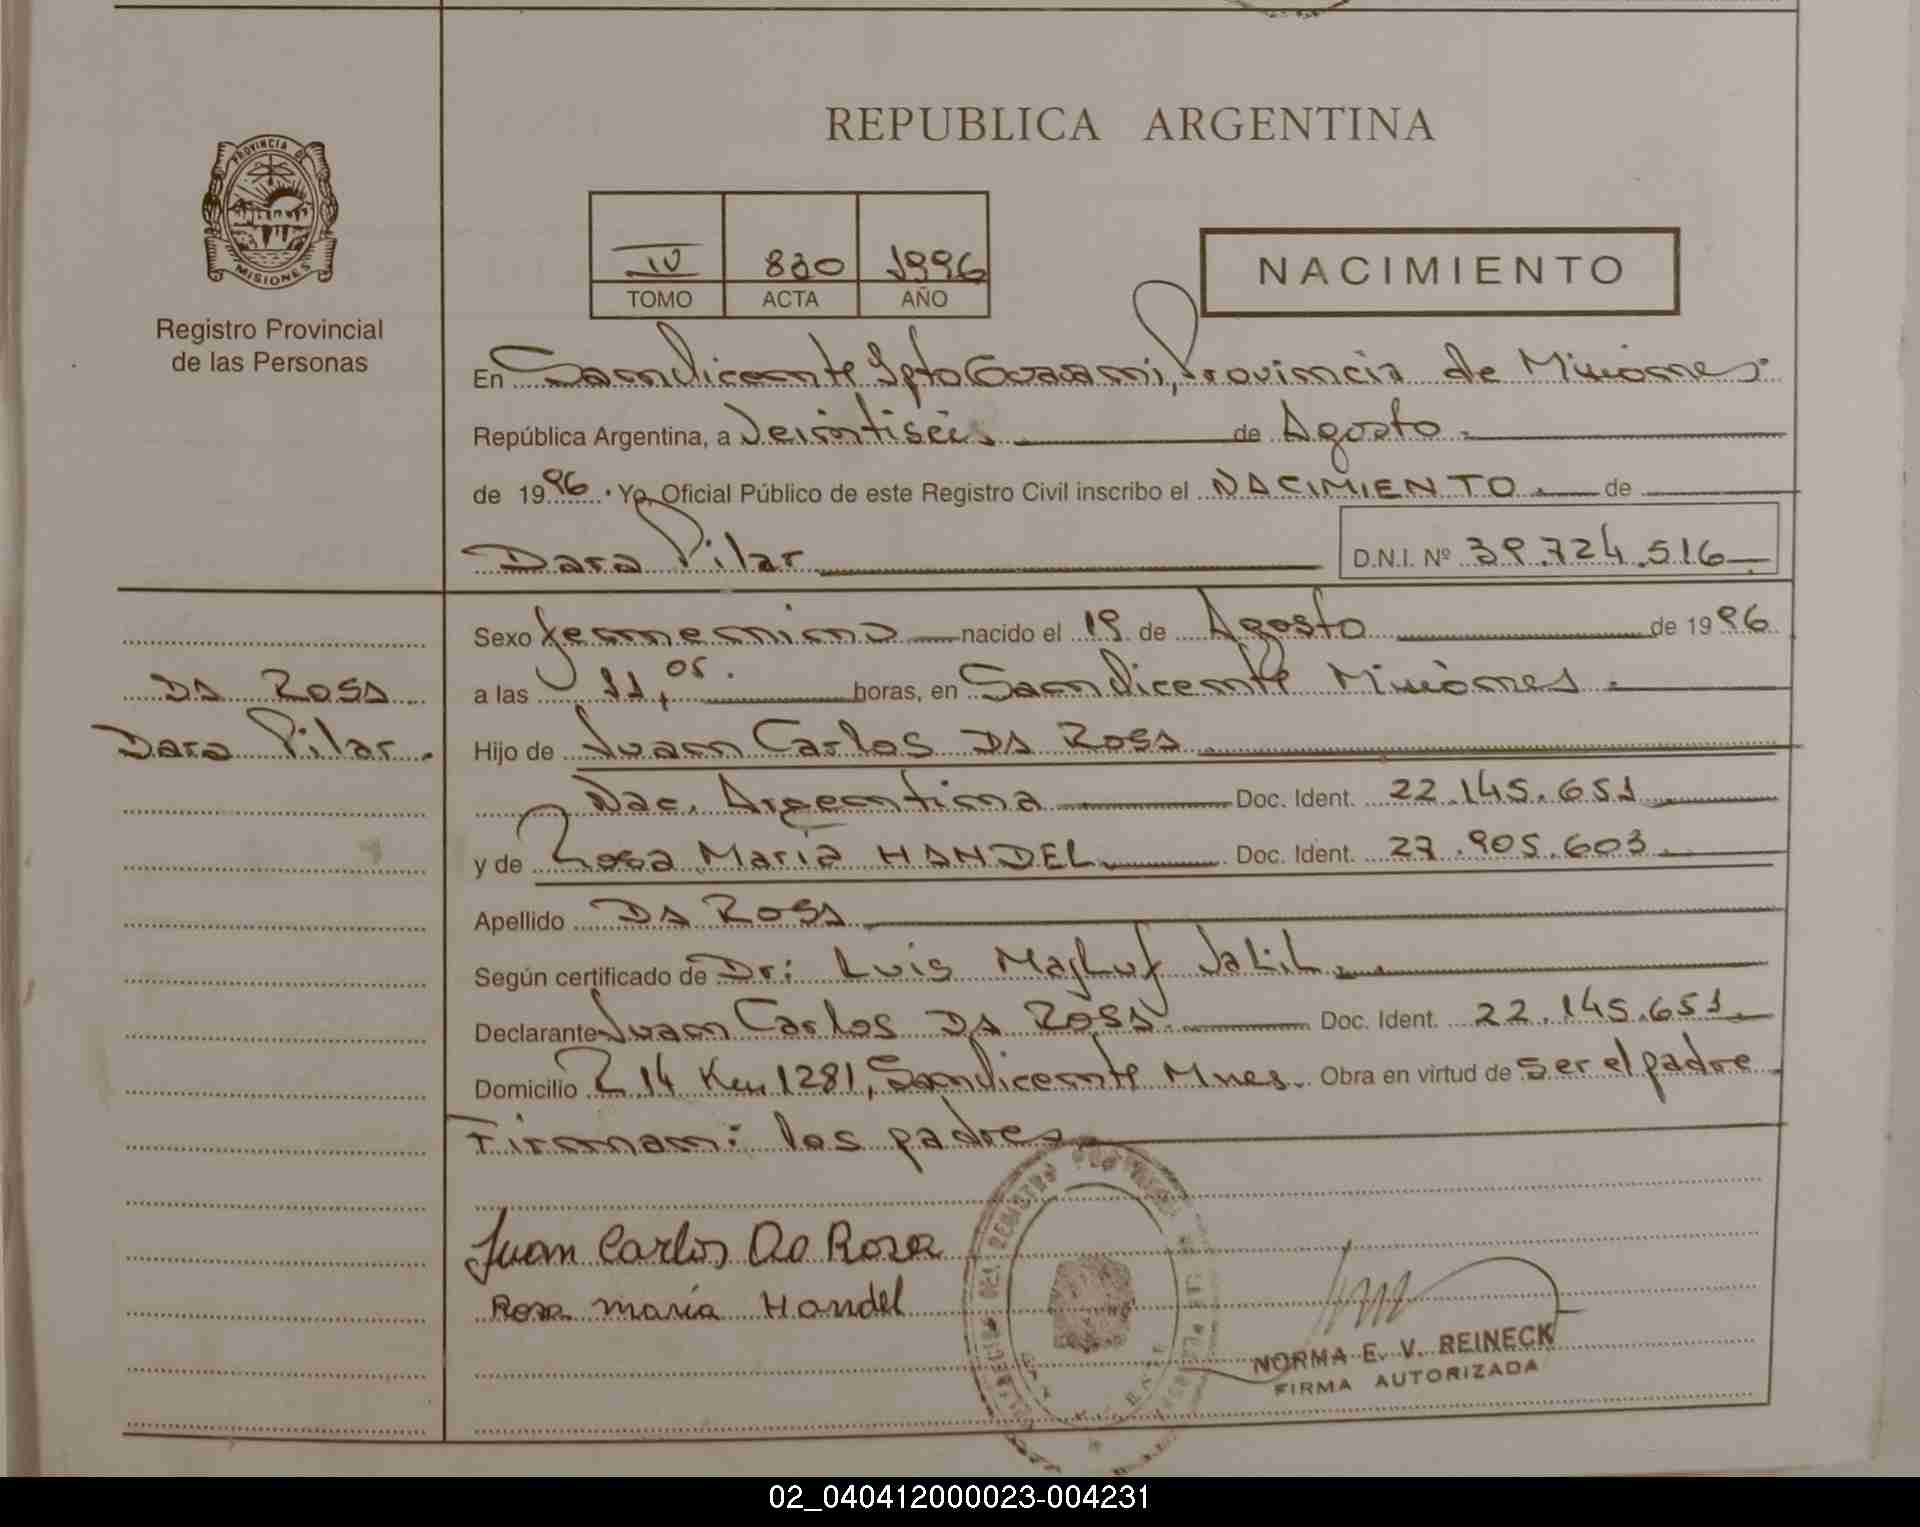 REPUBLICA ARGENTINA
PROVINCIA DE
MISIONES
Registro Provincial
de las Personas
IV 830 1996
TOMO ACTA AÑO
NACIMIENTO
En San Vicente Dpto Guarani, Provincia de Misiones.
República Argentina, a Veintiseis de Agosto.
de 1996. Yo, Oficial Público de este Registro Civil inscribo el NACIMIENTO. de
Dara Pilar D.N.I. Nº 39.724.516
Sexo femenino nacido el 19 de Agosto de 1996
DA ROSA
a las 11,05. horas, en San Vicente Misiones.
Dara Pilar.
Hijo de Juan Carlos DA ROSA
Nac. Argentina Doc. Ident. 22.145.651
y de Rosa María HANDEL Doc. Ident. 27.905.603
Apellido DA ROSA
Según certificado de Dr: Luis Majluf Jalil
Declarante Juan Carlos DA ROSA Doc. Ident. 22.145.651
Domicilio R 14 Km 1281, San Vicente Mnes. Obra en virtud de ser el padre
Firman: los padres
Juan Carlos Da Rosa
Rosa maría Handel
NORMA E. V. REINECK
FIRMA AUTORIZADA
02_040412000023-004231